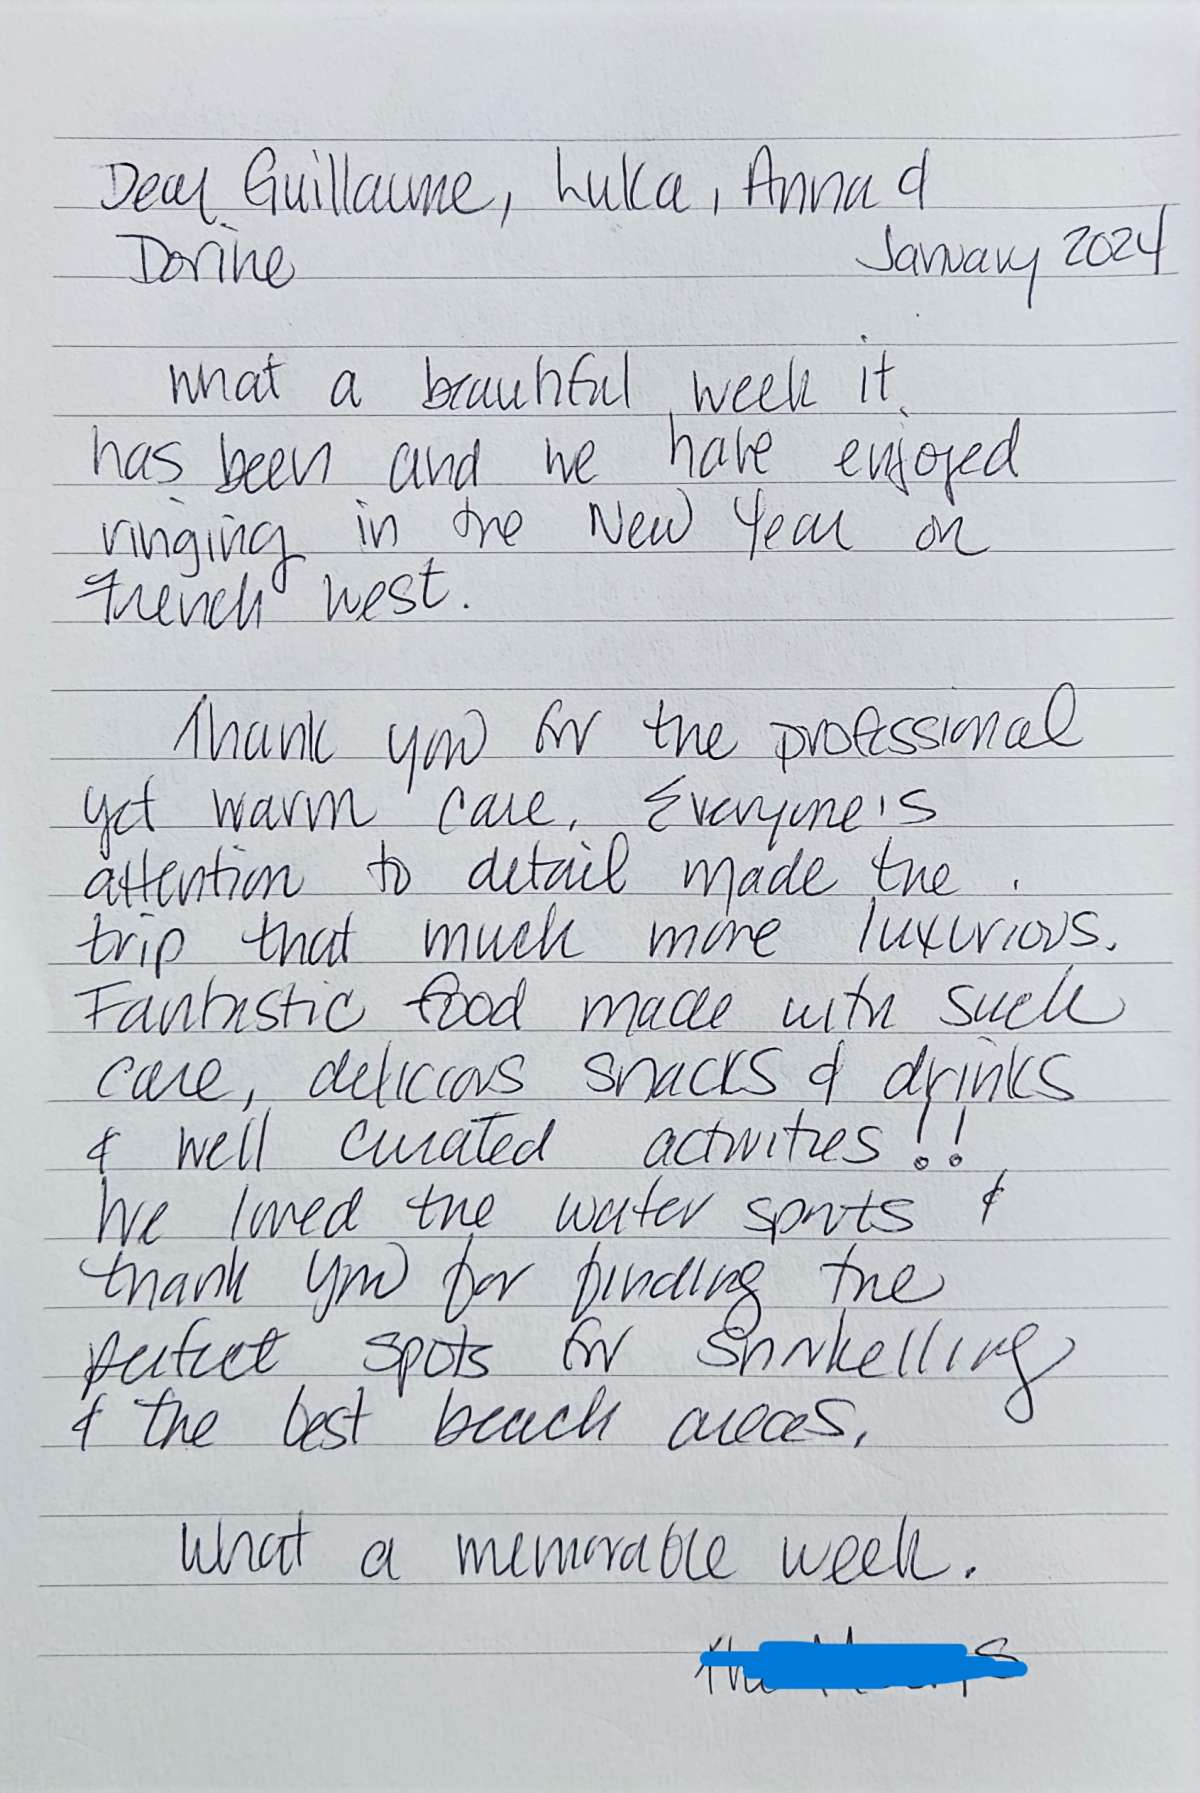 Dear Guillaume, Luka, Anna &
Dorine
January 2024
What a beautiful week it
has been and we have enjoyed
ringing in the New Year on
French West.
Thank you for the professional
yet warm care. Everyone's
attention to detail made the
trip that much more luxurious.
Fantastic food made with such
care, delicious snacks & drinks
& well curated activities!!
We loved the water sports &
thank you for finding the
perfect spots for snorkelling
& the best beach areas.
What a memorable week.
The